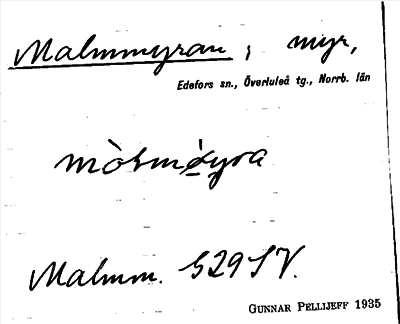 Malmmyran, myr,
Edefors sn., Överluleå tg., Norrb. län
Malmm. 529 SV.
GUNNAR PELLIJEFF 1935